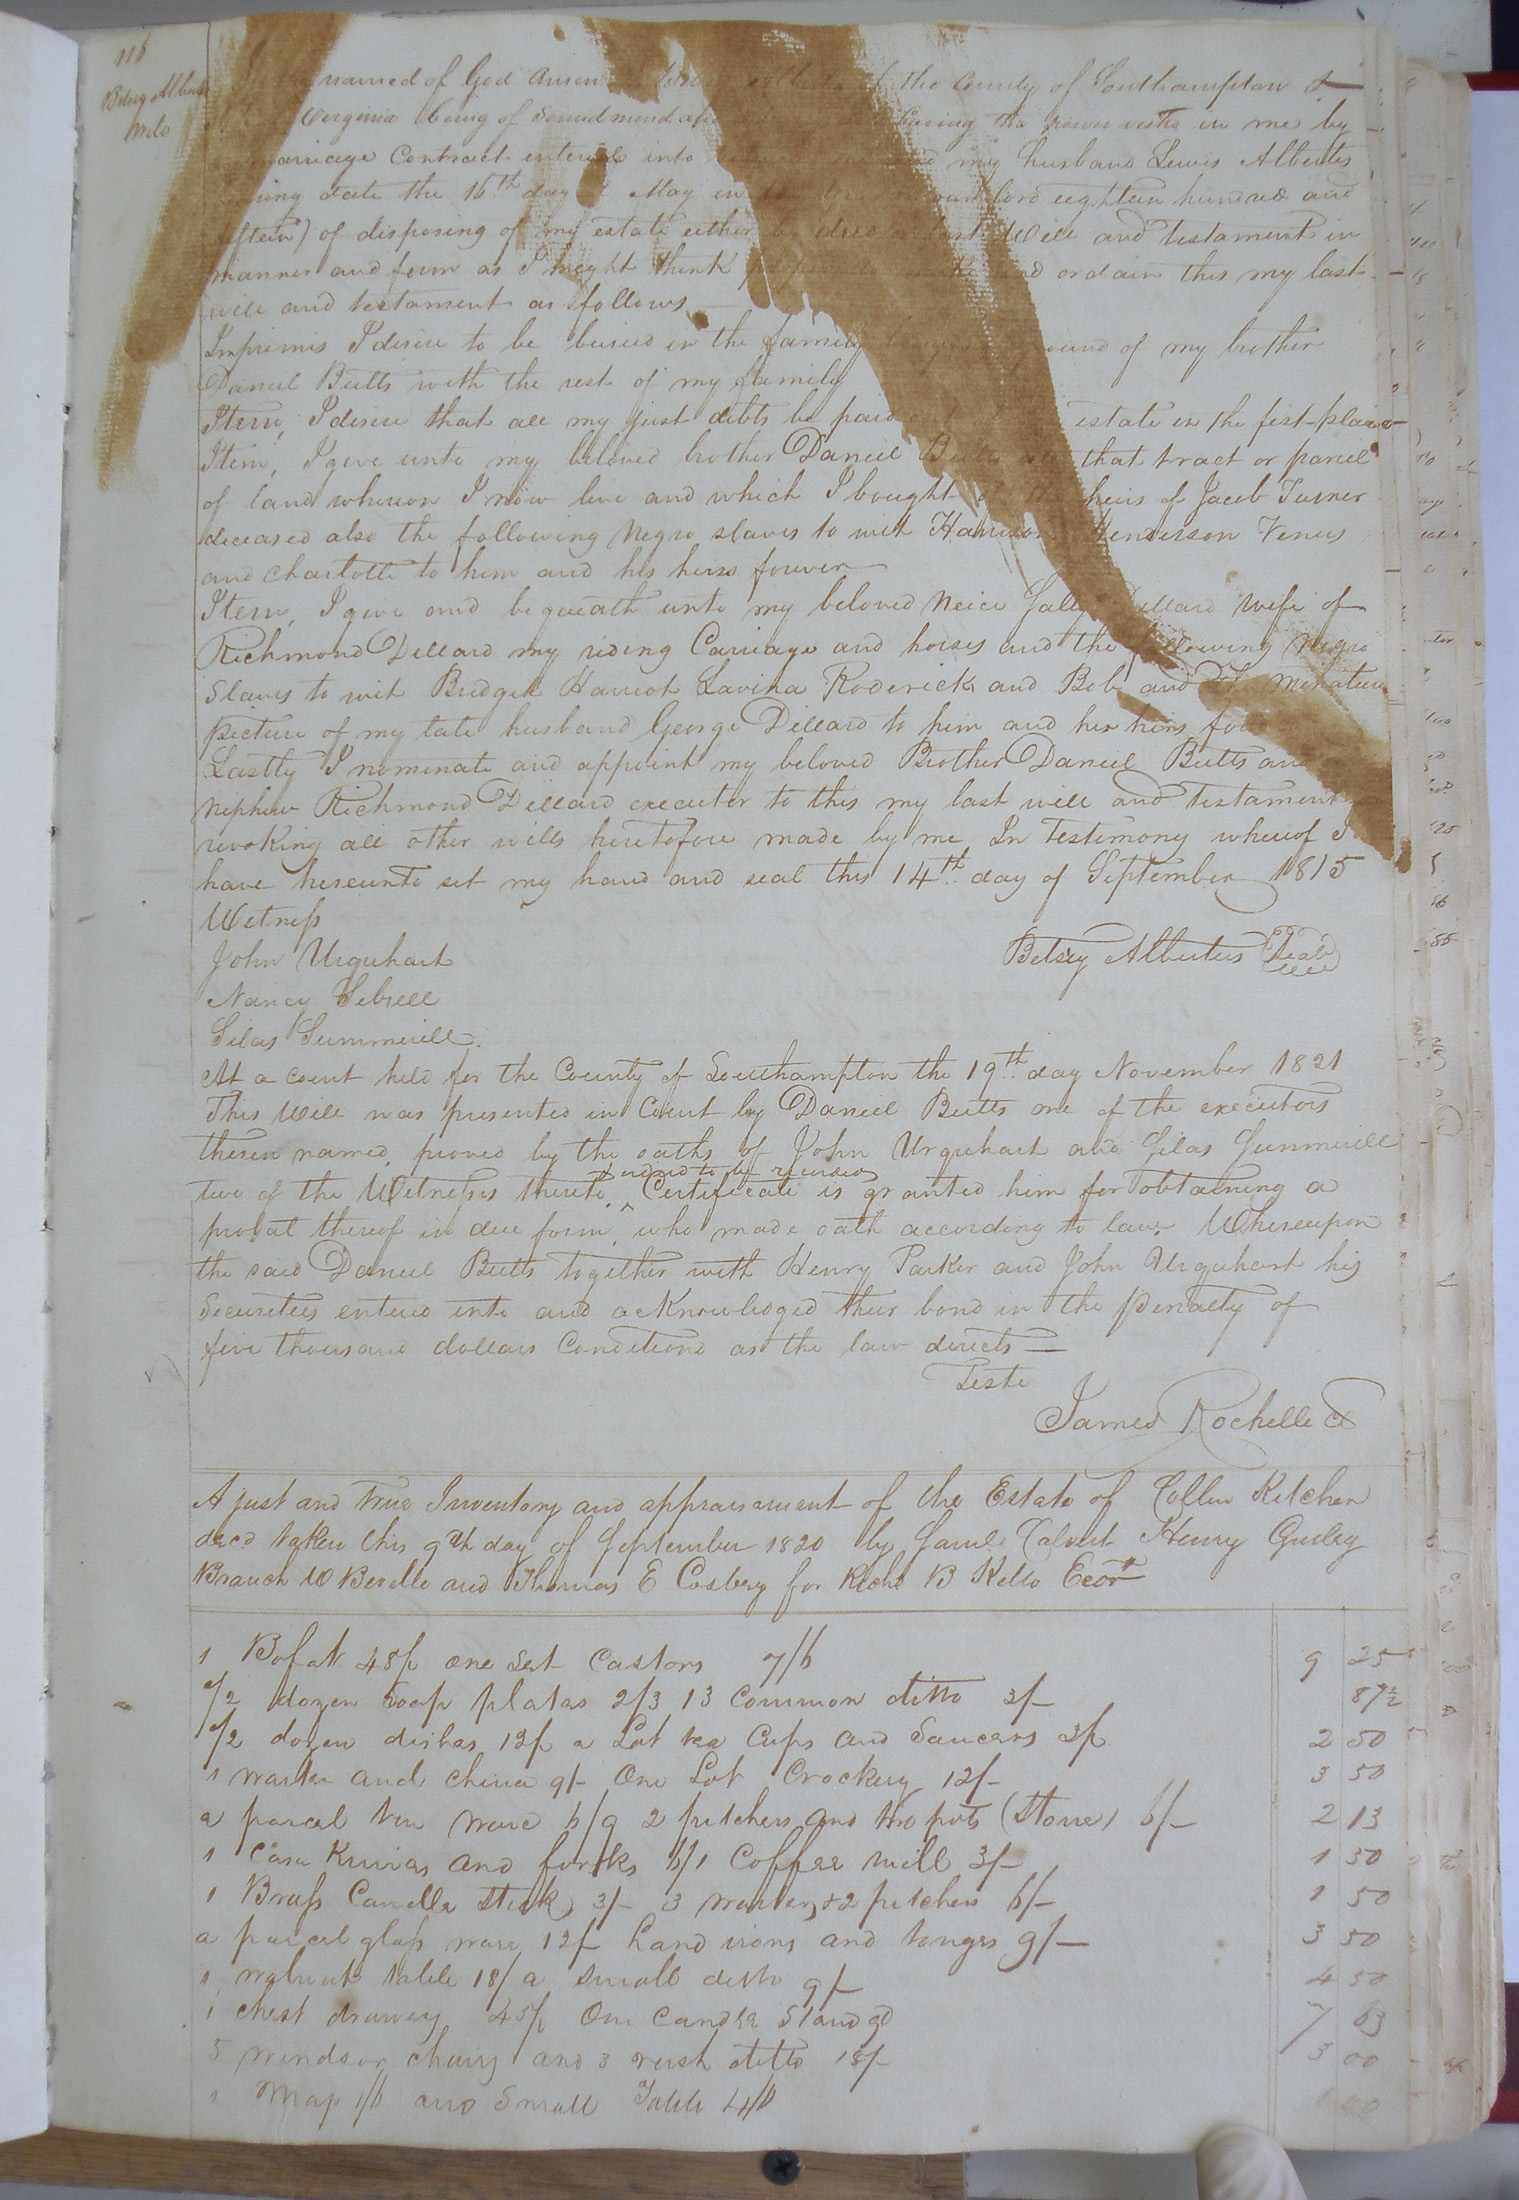 116
Betsey Albertis
Will
named of God Amen of the County of Southampton &
Virginia being of Sound mind and having the power vested in me by
marriage Contract entered into and my husband Lewis Albertis
date the 16th day of May in our lord eighteen hundred and
fifteen) of disposing of my estate either by deed or last Will and testament in
manner and form as I might think ordain this my last
will and testament as follows
Imprimis I desire to be buried in the family ground of my brother
Daniel Butts with the rest of my family
Item, I desire that all my just debts be paid estate in the first place
Item, I give unto my beloved brother Daniel Butts all that tract or parcel
of land whereon I now live and which I bought of the heirs of Jacob Turner
deceased also the following Negro slaves to wit Harrison Henderson Venus
and Charlotte to him and his heirs forever
Item, I give and bequeath unto my beloved Neice Sally Dillard wife of
Richmond Dillard my riding Carriage and horses and the following Negro
Slaves to wit Bridget Harriot Lavina Roderick and Bob and the minature
picture of my late husband George Dillard to him and her heirs
Lastly I nominate and appoint my beloved Brother Daniel Butts and
Nephew Richmond Dillard executor to this my last will and Testament
revoking all other wills heretofore made by me In Testimony whereof I
have hereunto set my hand and seal this 14th day of September 1815
Witness
John Urquhart
Betsey Albertis Seal
Nancy Sebrell
Silas Summerill
At a Court held for the County of Southampton the 19th day November 1821
This Will was presented in Court by Daniel Butts one of the executors
therein named, proved by the oaths of John Urquhart and Silas Summerill
& ordered to be recorded
two of the Witnesses thereto, ^ Certificate is granted him for obtaining a
probat thereof in due form, who made oath according to law. Whereupon
the said Daniel Butts together with Henry Parker and John Urquhart his
Securities entered into and acknowledged their bond in the penalty of
five thousand dollars Conditiond as the law directs
Teste
James Rochelle Cl
A just and true Inventory and appraisament of the Estate of Collin Kitchen
decd taken this 9th day of September 1820 by Saml Calvert Henry Gurley
Branch W Bevelle and Thomas E Cosbery for Richd B Kello Ecor
1 Bofat 48/ one Set Castors 7/6 9 25
1/2 dozen Soap plates 2/3 13 Common ditto 3/- 87½
1/2 dozen dishes 12/ a Lot tea Cups and Saucers 3/ 2 50
1 waiter and china 9/- One Lot Crockery 12/- 3 50
a parcel tin ware 6/9 2 pitchers and two pots (Stone) 6/- 2 13
1 Case Knives and forks 6/ 1 Coffee mill 3/- 1 50
1 Brass Candle stick 3/- 3 waiters & 2 pitchers 6/- 1 50
a parcel glass ware 12/- hand irons and tonges 9/- 3 50
1 walnut table 18/ a small ditto 9/- 4 50
1 chest drawers 45/ One Candle Stand 9d 7 63
5 windsor chairs and 3 rush ditto 18/- 3 00
1 Map 1/6 and Small Table 4/6 1 00